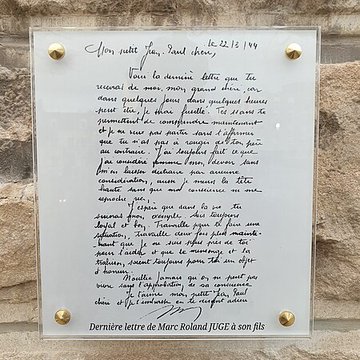 le 22/3/44
Mon petit Jean-Paul chéri,
Voici la dernière lettre que tu
recevras de moi, mon grand chéri, car
dans quelques jours dans quelques heures
peut être, je serai fusillé. Tes 12 ans te
permettent de comprendre maintenant
et je ne veux pas partir sans t'affirmer
que tu n'as pas à rougir de ton père
au contraire. J'ai toujours fait ce que
j'ai considéré comme mon devoir sans
m'en laisser distraire par aucune
considération, aussi je meurs la tête
haute sans que ma conscience ne me
reproche rien.
J'espère que dans la vie tu
suivras mon exemple sois toujours
loyal et bon. Travaille pour te faire une
situation, travaille deux fois plus mainte-
nant que je ne suis plus près de toi
pour t'aider et que le mensonge et la
trahison soient toujours pour toi un objet
d'horreur.
N'oublie jamais qu'on ne peut pas
vivre sans l'approbation de sa conscience
Je t'aime mon petit Jean Paul
chéri et je t'embrasse en te disant adieu
Dernière lettre de Marc Roland JUGE à son fils